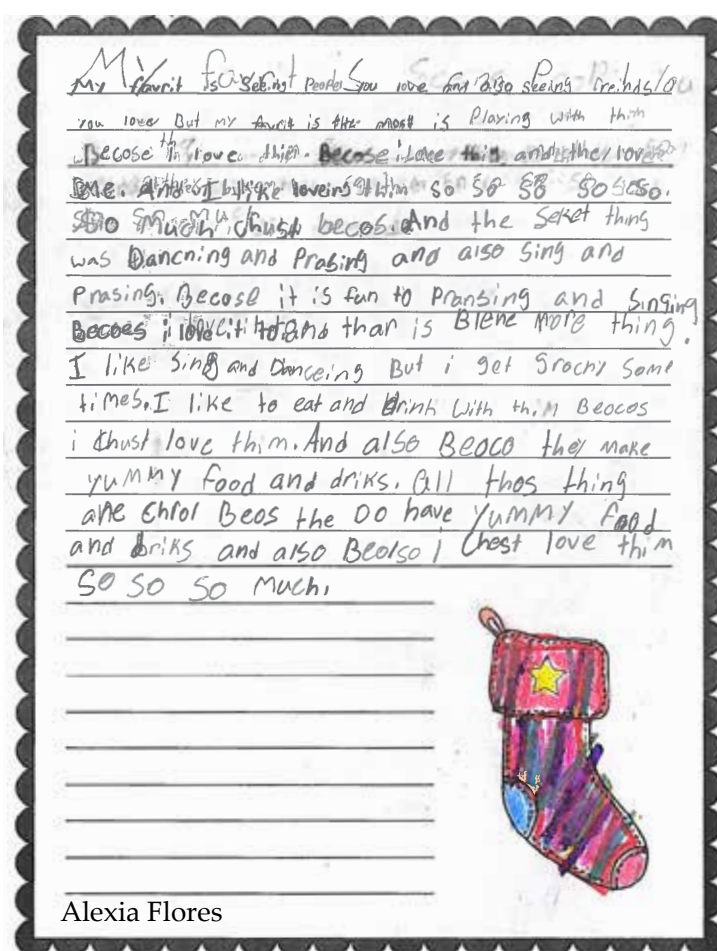 My favrit is seeing People you love and also seeing freinds/ou
you love But my favrit is the most is Playing with thim
Becose love thim. Becose i love thig and they love
me. And I like loveing thim so so so so so.
So Much Chust becos. And the Seket thing
was Dancning and Prasing and also Sing and
Prasing. Becose it is fun to Pransing and Singing
Becoes i love it and thar is Blene More thing.
I like Sing and Danceing But i get Grochy Some
times. I like to eat and Drink with thim Beocos
i Chust love thim. And also Beoco they Make
yuMMy food and driks. All thos thing
are Chrol Beos the Do have YuMMy food
and driks and also Beolso i Chest love thim
So So So Much.
Alexia Flores